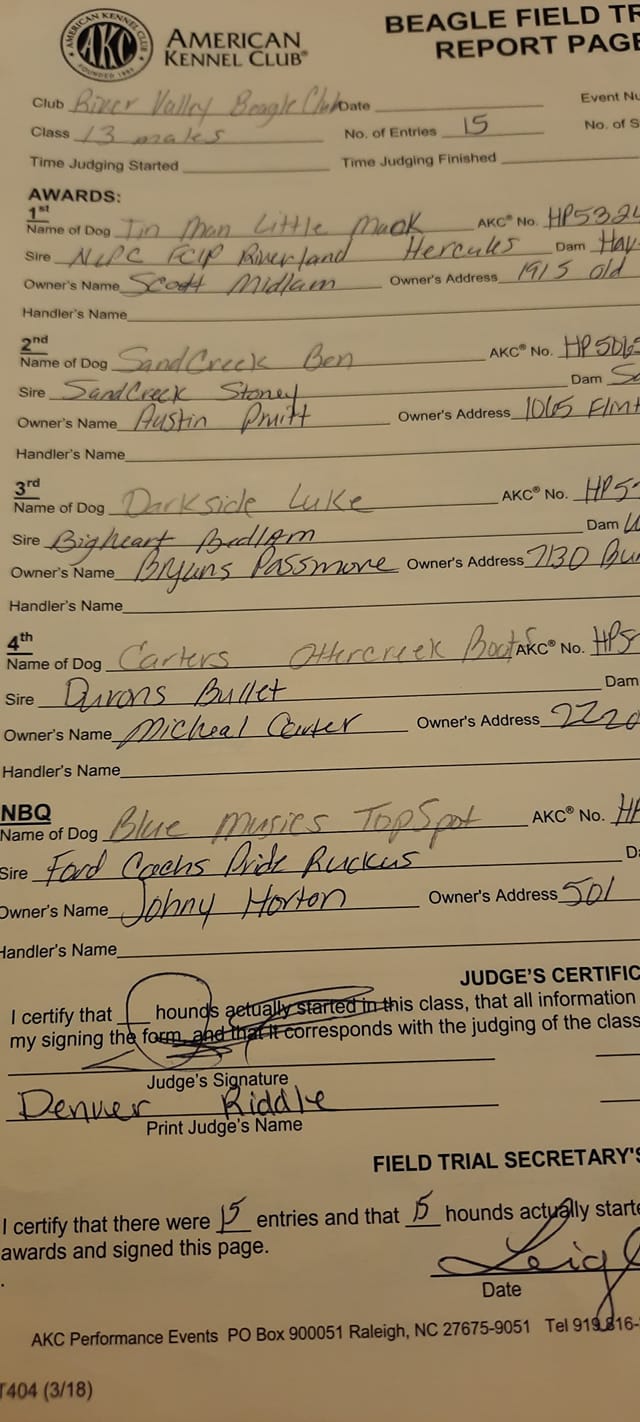 AMERICAN KENNEL CLUB
AKC
FOUNDED 1884
AMERICAN
KENNEL CLUB®
BEAGLE FIELD TR
REPORT PAGE
Club River Valley Beagle Club Date Event Nu
Class 13 males No. of Entries 15 No. of S
Time Judging Started Time Judging Finished
AWARDS:
1st
Name of Dog Tin Man Little Mack AKC® No. HP5324
Sire NLPC FCIP Riverland Hercules Dam Hay
Owner's Name Scott Midlam Owner's Address 1915 Old
Handler's Name
2nd
Name of Dog SandCreek Ben AKC® No. HP5065
Sire SandCreek Stoney Dam Sa
Owner's Name Austin Pruitt Owner's Address 1065 Flint
Handler's Name
3rd
Name of Dog Darkside Luke AKC® No. HP5
Sire Bigheart Bedlam Dam W
Owner's Name Bryans Passmore Owner's Address 7130 Bu
Handler's Name
4th
Name of Dog Carters Ottercreek Boots AKC® No. HP5
Sire Durons Bullet Dam
Owner's Name Micheal Carter Owner's Address 2220
Handler's Name
NBQ
Name of Dog Blue Musics TopSpot AKC® No. HP
Sire Ford Coachs Pride Ruckus Da
Owner's Name Johny Horton Owner's Address 501
Handler's Name
JUDGE'S CERTIFIC
I certify that hounds actually started in this class, that all information
my signing the form, and that it corresponds with the judging of the class
Judge's Signature
Denver Riddle
Print Judge's Name
FIELD TRIAL SECRETARY'S
I certify that there were 15 entries and that 15 hounds actually starte
awards and signed this page.
Leigh
Date
AKC Performance Events PO Box 900051 Raleigh, NC 27675-9051 Tel 919.816-
T404 (3/18)